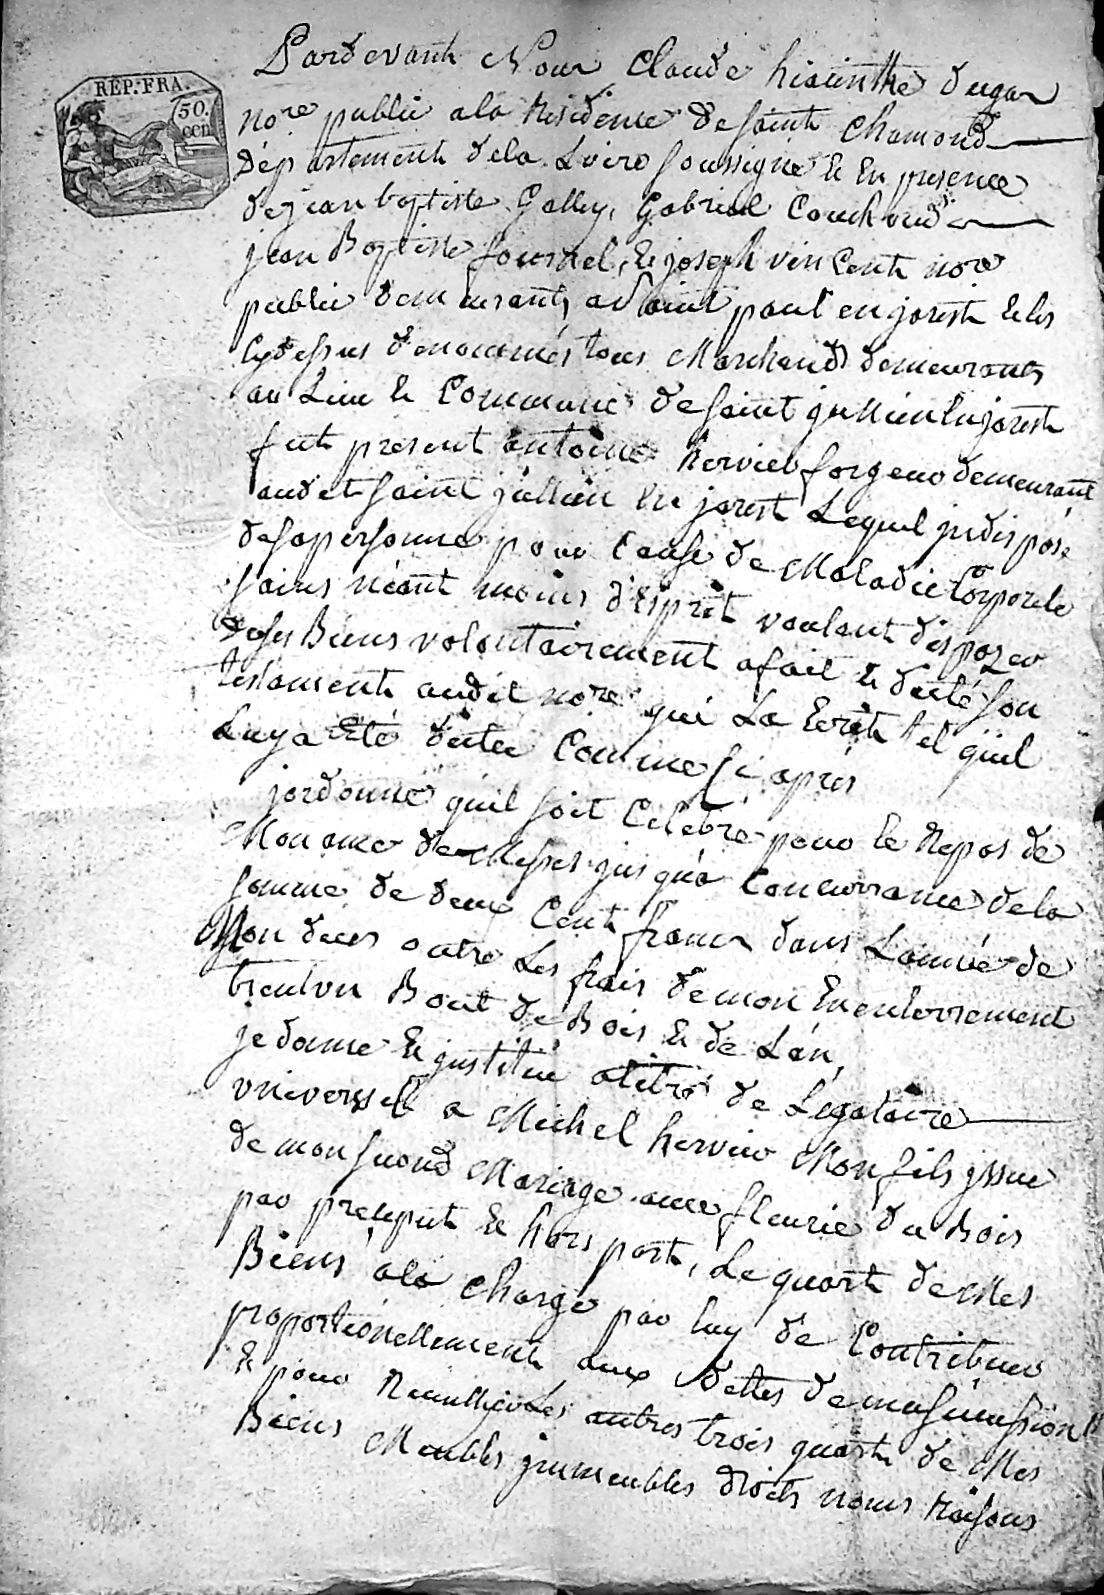 REP. FRA.
50.
cen
Pardevant Nous Claude hiacinthe dugas
nore public a la Residence de saint chamond
département dela Loire soussigné & En presence
de jean baptiste Galley, Gabriel Couchoud
jean Baptiste fournel, & joseph vincent nore
public demeurants a saint paul en jarest & les
cydessus denommés tous Marchands demeurants
au Lieu & Commune de saint jullien En jarest
fut present antoine hervier forgeur demeurant
audet saint jullien En jarest Lequel jndisposé
de sa personne pour Cause de Maladie Corporele
sains néant moins d'Esprit voulant dispozer
de ses Biens volontairement a fait & dicté son
testament audit nore qui La Ecrit tel quil
Luy a Eté dicté Comme si apres
jordonne quil soit Celebré pour le Repos de
Mon ame de Messes jusqu'a Concurrance dela
somme de deux Cent francs dans Lannée de
Mon deces outre Les frais de mon Enenterrement
trentin Bout de Bois & de L'an,
je donne & justitue atitre de Légataire
vniversel a Michel hervier Mon fils jssue
de mon second Mariage avec fleurie du Bois
par preciput & hors part, Le quart de Mes
Biens a la Charge par luy de Contribuer
proportionellement aux dettes de ma succession
& pour Receuillier Les autres trois quarts de Mes
Biens Meubles jmmeubles droits noms Raisons